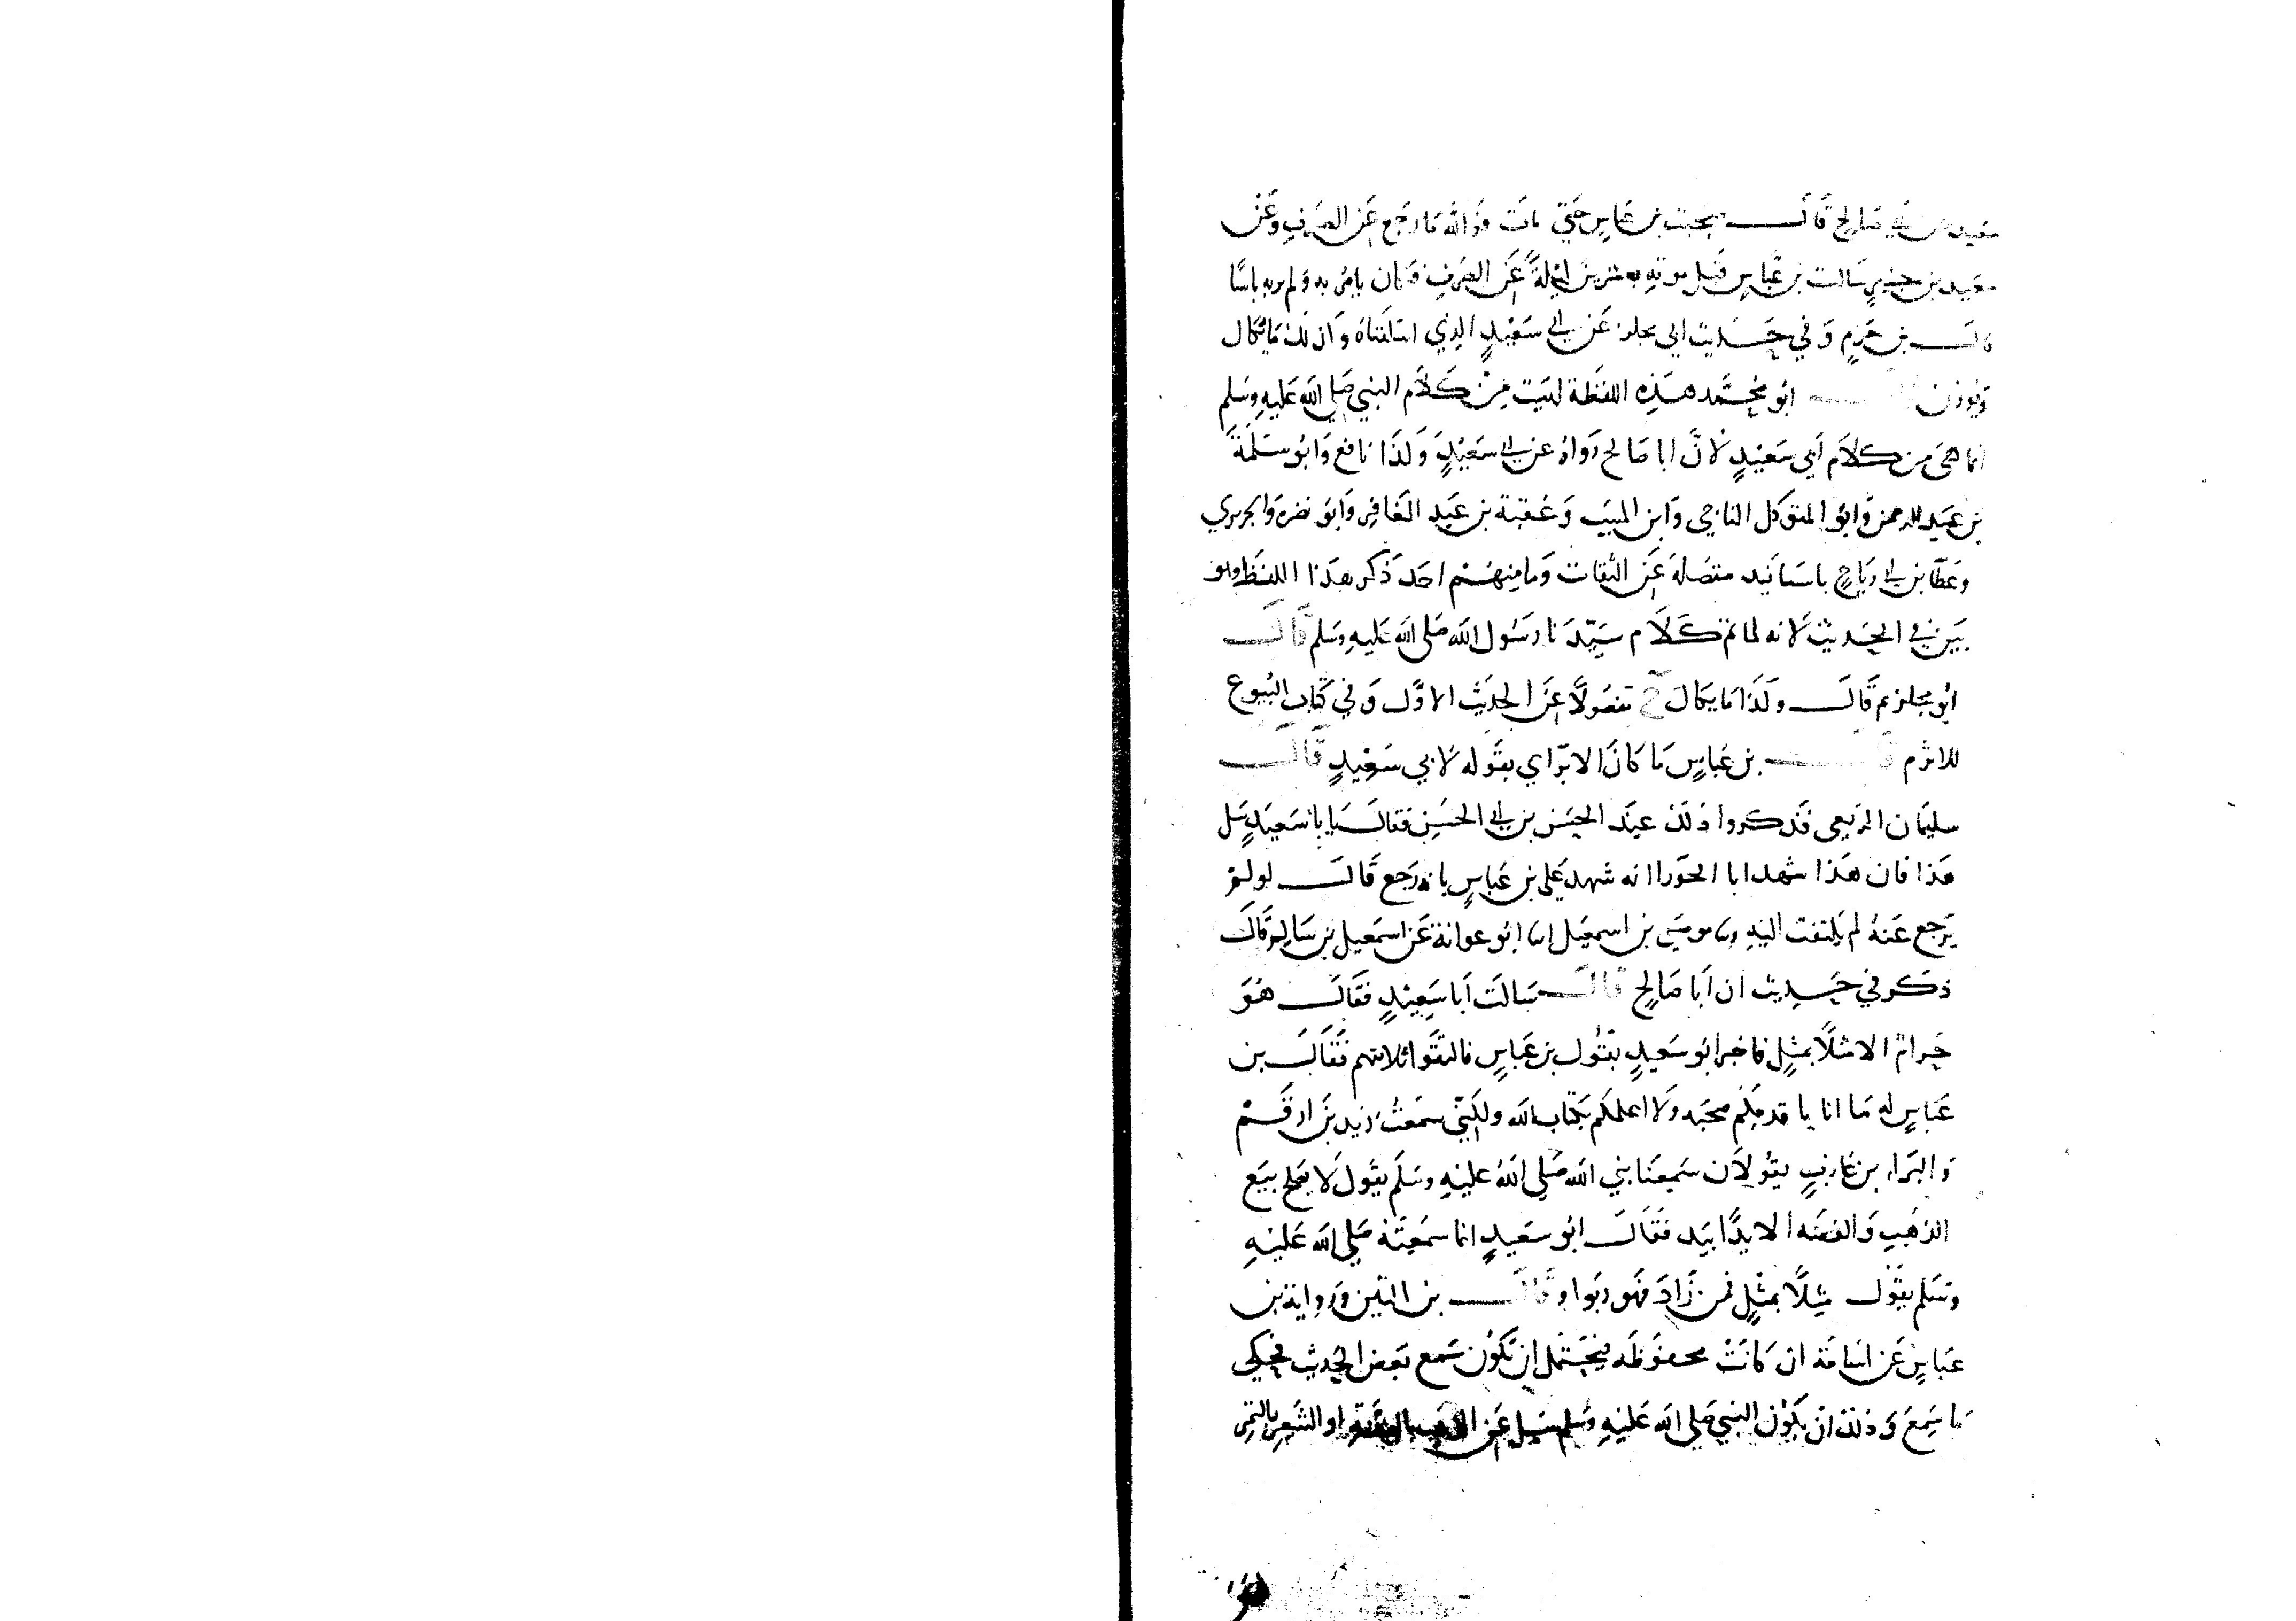 سعيد عن ابي صالح قال صحبت بن عباس حتي مات فوالله ما رجع عن الصرف وعن
سعيد بن جبير سالت بن عباس قبل موته بعشرين ليلة عن الصرف وكان يامر به ولم يربه باسًا
قال بن حزم وفي حديث ابي مجلز عن ابي سعيد الذي اسلفناه وان ذلك ما يكال
ويوزن ابو محمد هذه اللفظة ليست من كلام النبي صلي الله عليه وسلم
انما هي من كلام ابي سعيد لان ابا صالح رواه عن ابي سعيد وكذا نافع وابو سلمة
بن عبد الرحمن وابو المتوكل الناجي وابن المسيب وعقبة بن عبد الغافر وابو نضره والجريري
وعطا بن ابي رباح باسانيد متصلة عن الثقات وما منهم احد ذكر هذا اللفظ وهو
بين في الحديث لانه لما تم كلام سيدنا رسول الله صلى الله عليه وسلم قال
ابو مجلز ثم قال وكذا ما يكال مفصولًا عن الحديث الاول وفي كتاب البيوع
للاثرم قال بن عباس ما كان الا براي بقوله لابي سعيد قال
سليمان الربعي فذكروا ذلك عند الحسن بن ابي الحسن فقال يا ابا سعيد سل
هذا فان هذا شهد ابا الحورا انه شهد على بن عباس بانه رجع قال لو لم
يرجع عنه لم يلتفت اليه وثنا موسي بن اسمعيل انا ابو عوانة عن اسمعيل بن سالم قال
ذكر في حديث ان ابا صالح قال سالت ابا سعيد فقال هو
حرام الا مثلًا بمثل فاخبر ابو سعيد بقول بن عباس فالتقوا ثلاثتهم فقال بن
عباس له ما انا باقدمكم صحبه ولا اعلمكم بكتاب الله ولكني سمعت زيد بن ارقم
والبراء بن عازب يقولان سمعنا نبي الله صلي الله عليه وسلم يقول لا يصلح بيع
الذهب والفضه الا يدًا بيد فقال ابو سعيد انما سمعته صلي الله عليه
وسلم يقول مثلًا بمثل فمن زاد فهو ربوا وقال بن التين ورواية بن
عباس عن اسامة ان كانت محفوظه فيحتمل ان تكون سمع بعض الحديث فحكي
ما سمع وذلك ان يكون النبي صلي الله عليه وسلم سيل عن الذهب بالفضة او الشعير بالتمر